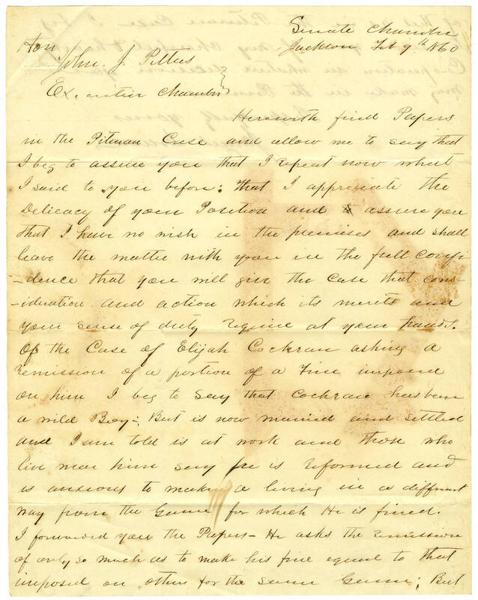 Senate Chamber
Jackson Feb 9th 1860
Hon
John. J. Pettus
Executive Chamber
Herewith find Papers
in the Pitman Case and allow me to say that
I beg to assure you that I repeat now what
I said to you before: that I appreciate the
Delicacy of your Position and assure you
that I have no wish in the premises and shall
leave the matter with you in the full confi-
-dence that you will give the Case that cons-
-ideration and action which its merits and
your sense of duty require at your hands.
Of the Case of Elijah Cockran asking a
remission of a portion of a Fine imposed
on him I beg to say that Cockran has been
a wild Boy: But is now married and settled
and I am told is at work and those who
live near him say he is reformed and
is anxious to make a living in a different
way from the Game for which He is fined.
I forward you the Papers- He asks the remission
of only so much as to make his fine equal to that
imposed on others for the same Game; But